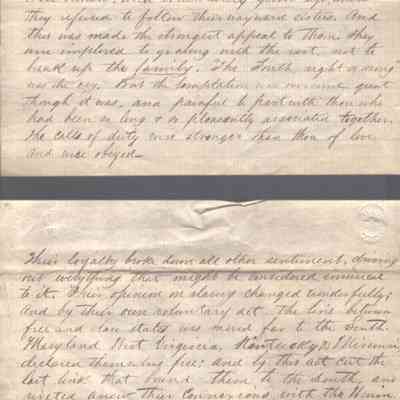 they refused to follow their wayward sisters. And
this was made the strongest appeal to them. They
were implored to go along with the rest, not to
break up the family. "The South, right or wrong"
was the cry. But the temptation was great
though it was, and painful to part with those who
had been so long & so pleasantly associated together,
the calls of duty were stronger than those of love
and were obeyed—
Their loyalty broke down all other sentiment, driving
out everything that might be considered inimical
to it. Their opinion on slavery changed wonderfully;
and by their own voluntary act. The line between
free and slave states was moved far to the South.
Maryland West Virginia, Kentucky & Missouri
declared themselves free; and by this act cut the
last link that bound them to the South, and
united anew their connexions with the Union.